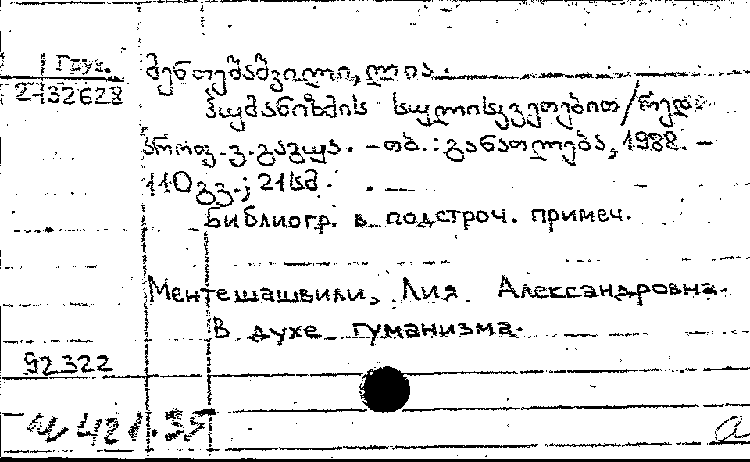 Груз.
მენთეშაშვილი, ლია.
2-132628
ჰუმანიზმის სულისკვეთებით / რედ.
პროფ. ვ. გაგუა. – თბ. : განათლება, 1988. –
110 გვ. ; 21 სმ.
Библиогр. в подстроч. примеч.
Ментешашвили, Лия Александровна.
В духе гуманизма.
92322
421.35
a